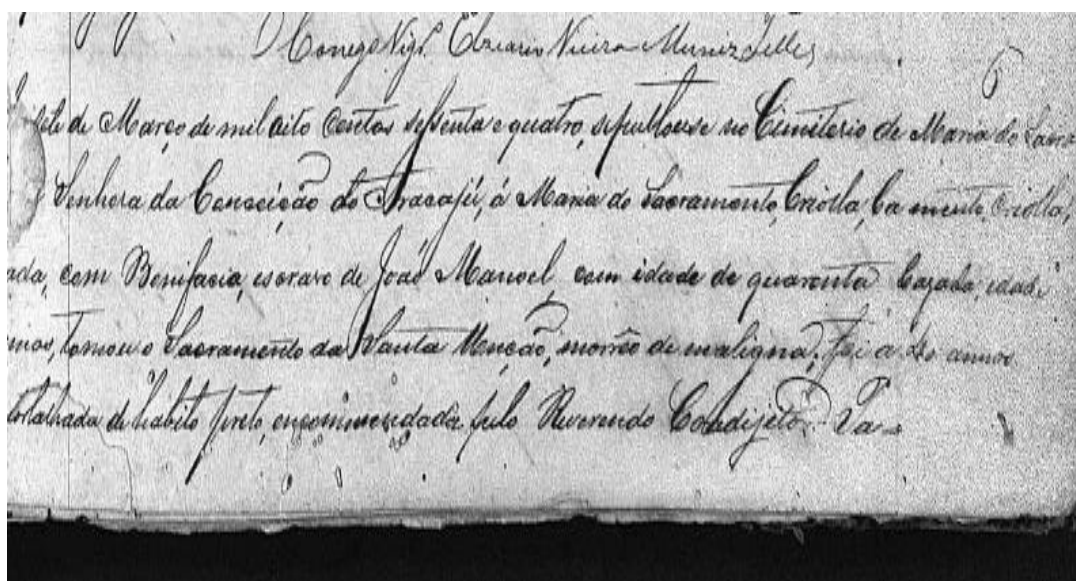 O Conego Vigr. Elziario Vieira Muniz Telles
6
sete de Março de mil oito centos sessenta e quatro, sepultouse no Cimiterio de Maria do Sacra
Senhora da Conceição do Aracajú, á Maria do Sacramento, Criolla, Ca mento, criolla,
ada, com Bonifacio, escravo de João Manoel, com idade de quarenta Cazada, idade
nnos, tomou o Sacramento da Santa Uncão, morrêo de maligna, foi a 40 annos
ortalhada de habito preto, encommendada pelo Reverendo Coadijctor